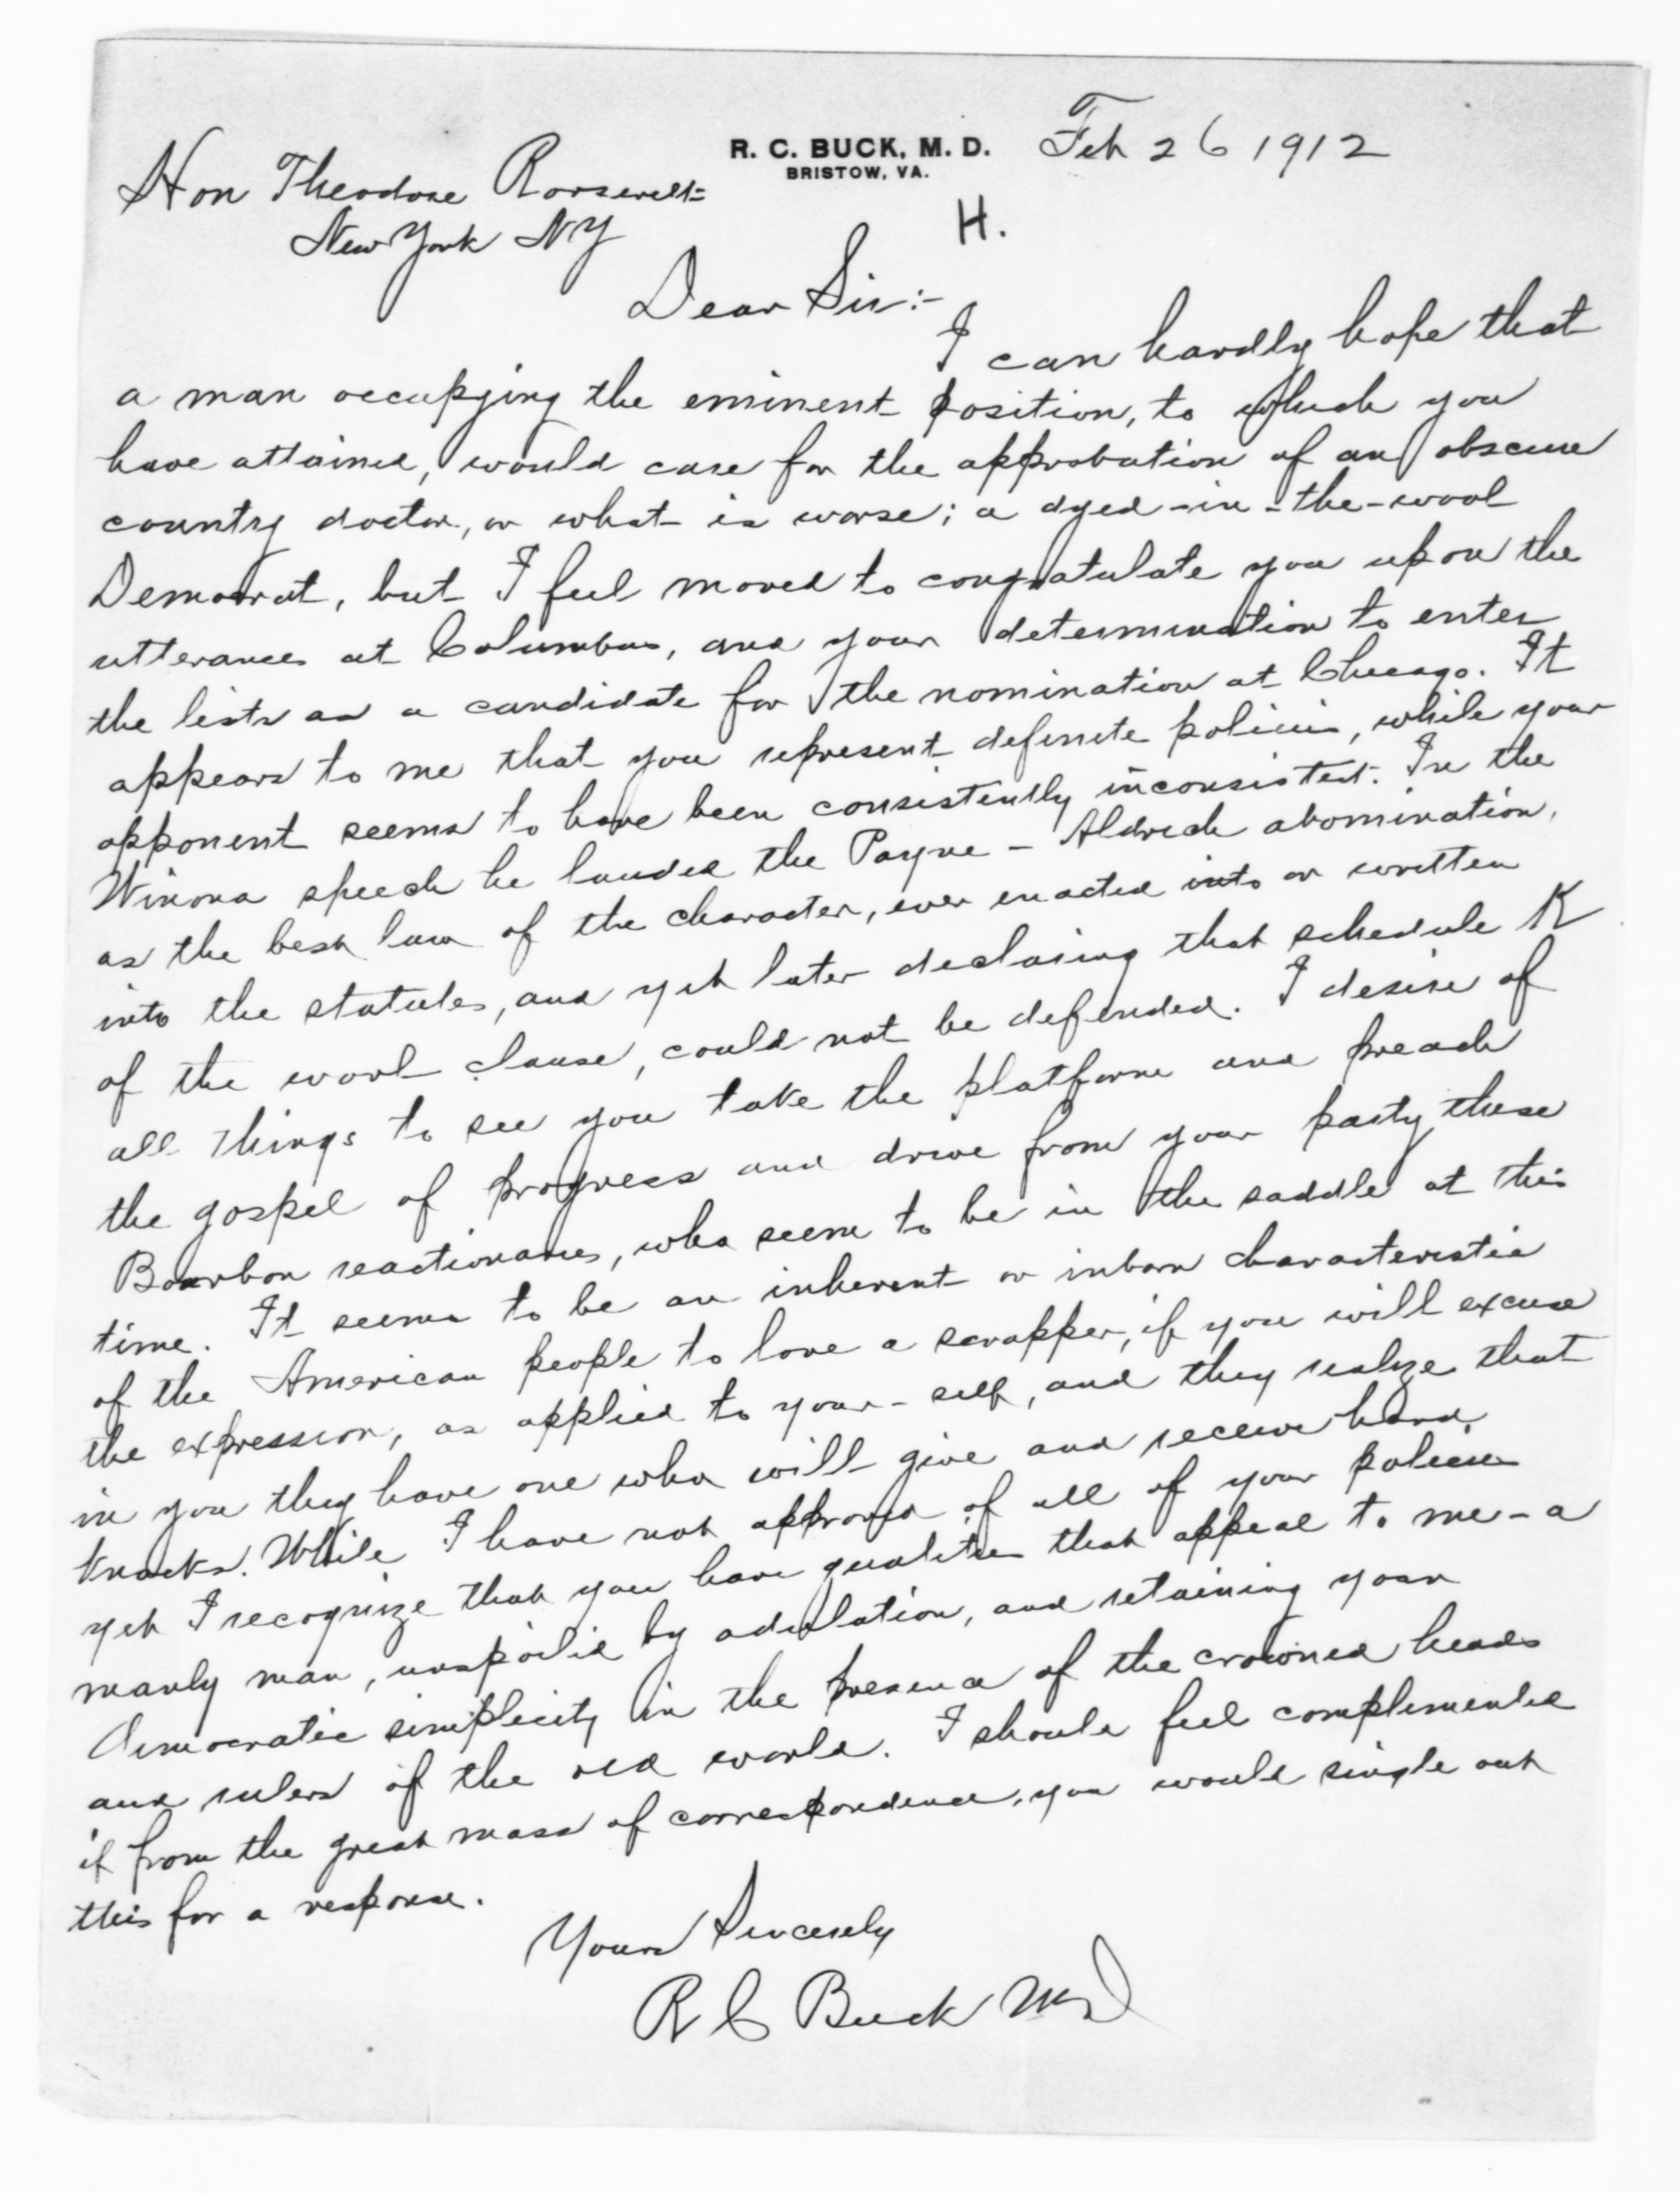 R. C. BUCK, M. D.
BRISTOW, VA.
Feb 26 1912
Hon Theodore Roosevelt
New York NY
H.
Dear Sir:-
I can hardly hope that
a man occupying the eminent position, to which you
have attained, would care for the approbation of an obscure
country doctor, or what is worse; a dyed-in-the-wool
Democrat, but I feel moved to congratulate you upon the
utterances at Columbus, and your determination to enter
the lists as a candidate for the nomination at Chicago. It
appears to me that you represent definite policies, while your
opponent seems to have been consistently inconsistent. In the
Winona speech he lauded the Payne - Aldrich abomination,
as the best law of the character, ever enacted into or written
into the statutes, and yet later declaring that schedule K
of the wool clause, could not be defended. I desire of
all things to see you take the platform and preach
the gospel of progress and drive from your party these
Bourbon reactionaries, who seem to be in the saddle at this
time. It seems to be an inherent or inborn characteristic
of the American people to love a scrapper, if you will excuse
the expression, as applied to your-self, and they realize that
in you they have one who will give and receive hard
knocks. While I have not approved of all of your policies
yet I recognize that you have qualities that appeal to me - a
manly man, unspoiled by adulation, and retaining your
democratic simplicity in the presence of the crowned heads
and rulers of the old world. I should feel complemented
if from the great mass of correspondence, you would single out
this for a response.
Yours Sincerely
R C Buck MD